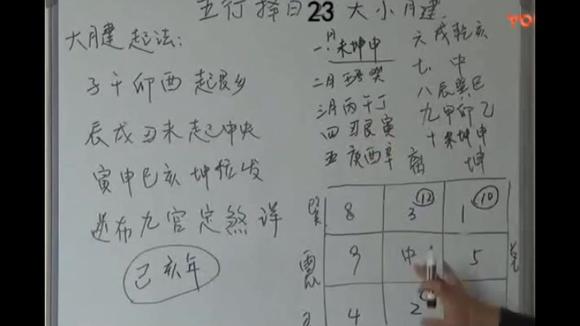 五行择日23大小月建
大月建起法:
子午卯酉起艮乡
辰戌丑未起中央
寅申巳亥坤位发
逆布九宫定煞详
己亥年
一月未坤申
二月壬子癸
三月丙午丁
四丑艮寅
五庚酉辛
六戌乾亥
七中
八辰巽巳
九甲卯乙
十未坤申
离 坤
巽 8 3 12 1 10
震 9 中 5
4 2